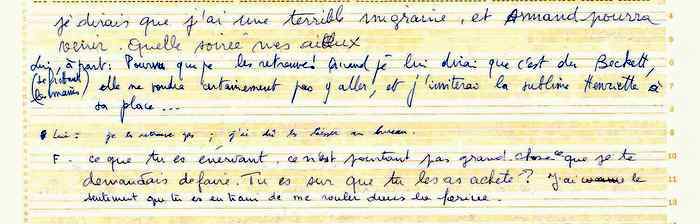 je dirais que j'ai une terrible migraine, et Armand pourra
venir. Quelle soirée mes aïeux
Lui, à part: Pourvu que je les retrouve! Quand je lui dirai que c'est du Beckett,
(se frottant les mains) elle ne voudra certainement pas y aller, et j'inviterai la sublime Henriette à
sa place...
Lui: je les retrouve pas; j'ai dû les laisser au bureau.
F. ce que tu es énervant, ce n'est pourtant pas grand chose que je te
demandais de faire. Tu es sur que tu les as acheté? J'ai le
sentiment que tu es en train de me rouler dans la farine.
4
5
6
7
8
9
10
11
12